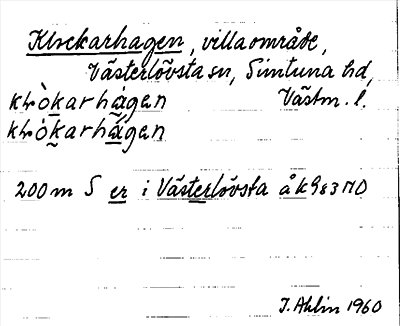 Klockarhagen, villaområde,
Västerlövsta sn, Simtuna hd,
klòkarhàgan Västm. l.
klòkarhä̀gen
200 m S er i Västerlövsta åk 983 NO
J. Ahlin 1960